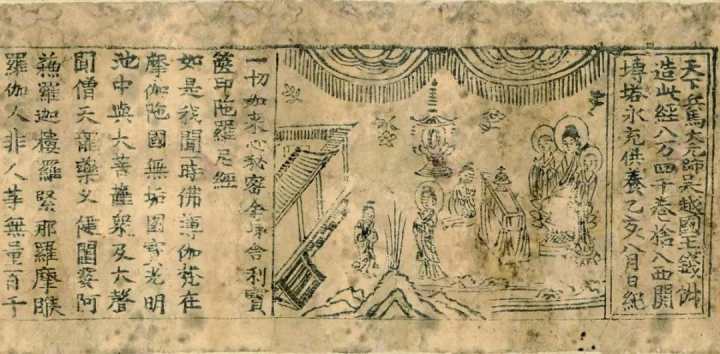 天下兵馬大元帥吳越國王錢俶
造此經八万四千卷捨入西關
塼塔永充供養乙亥八月日紀
一切如來心秘密全身舍利寶
篋印陁羅尼經
如是我聞一時佛薄伽梵在
摩伽陁國無垢園寶光明
池中與大菩薩衆及大聲
聞僧天龍藥叉健闥婆阿
蘓羅迦樓羅緊那羅摩睺
羅伽人非人等無量百千